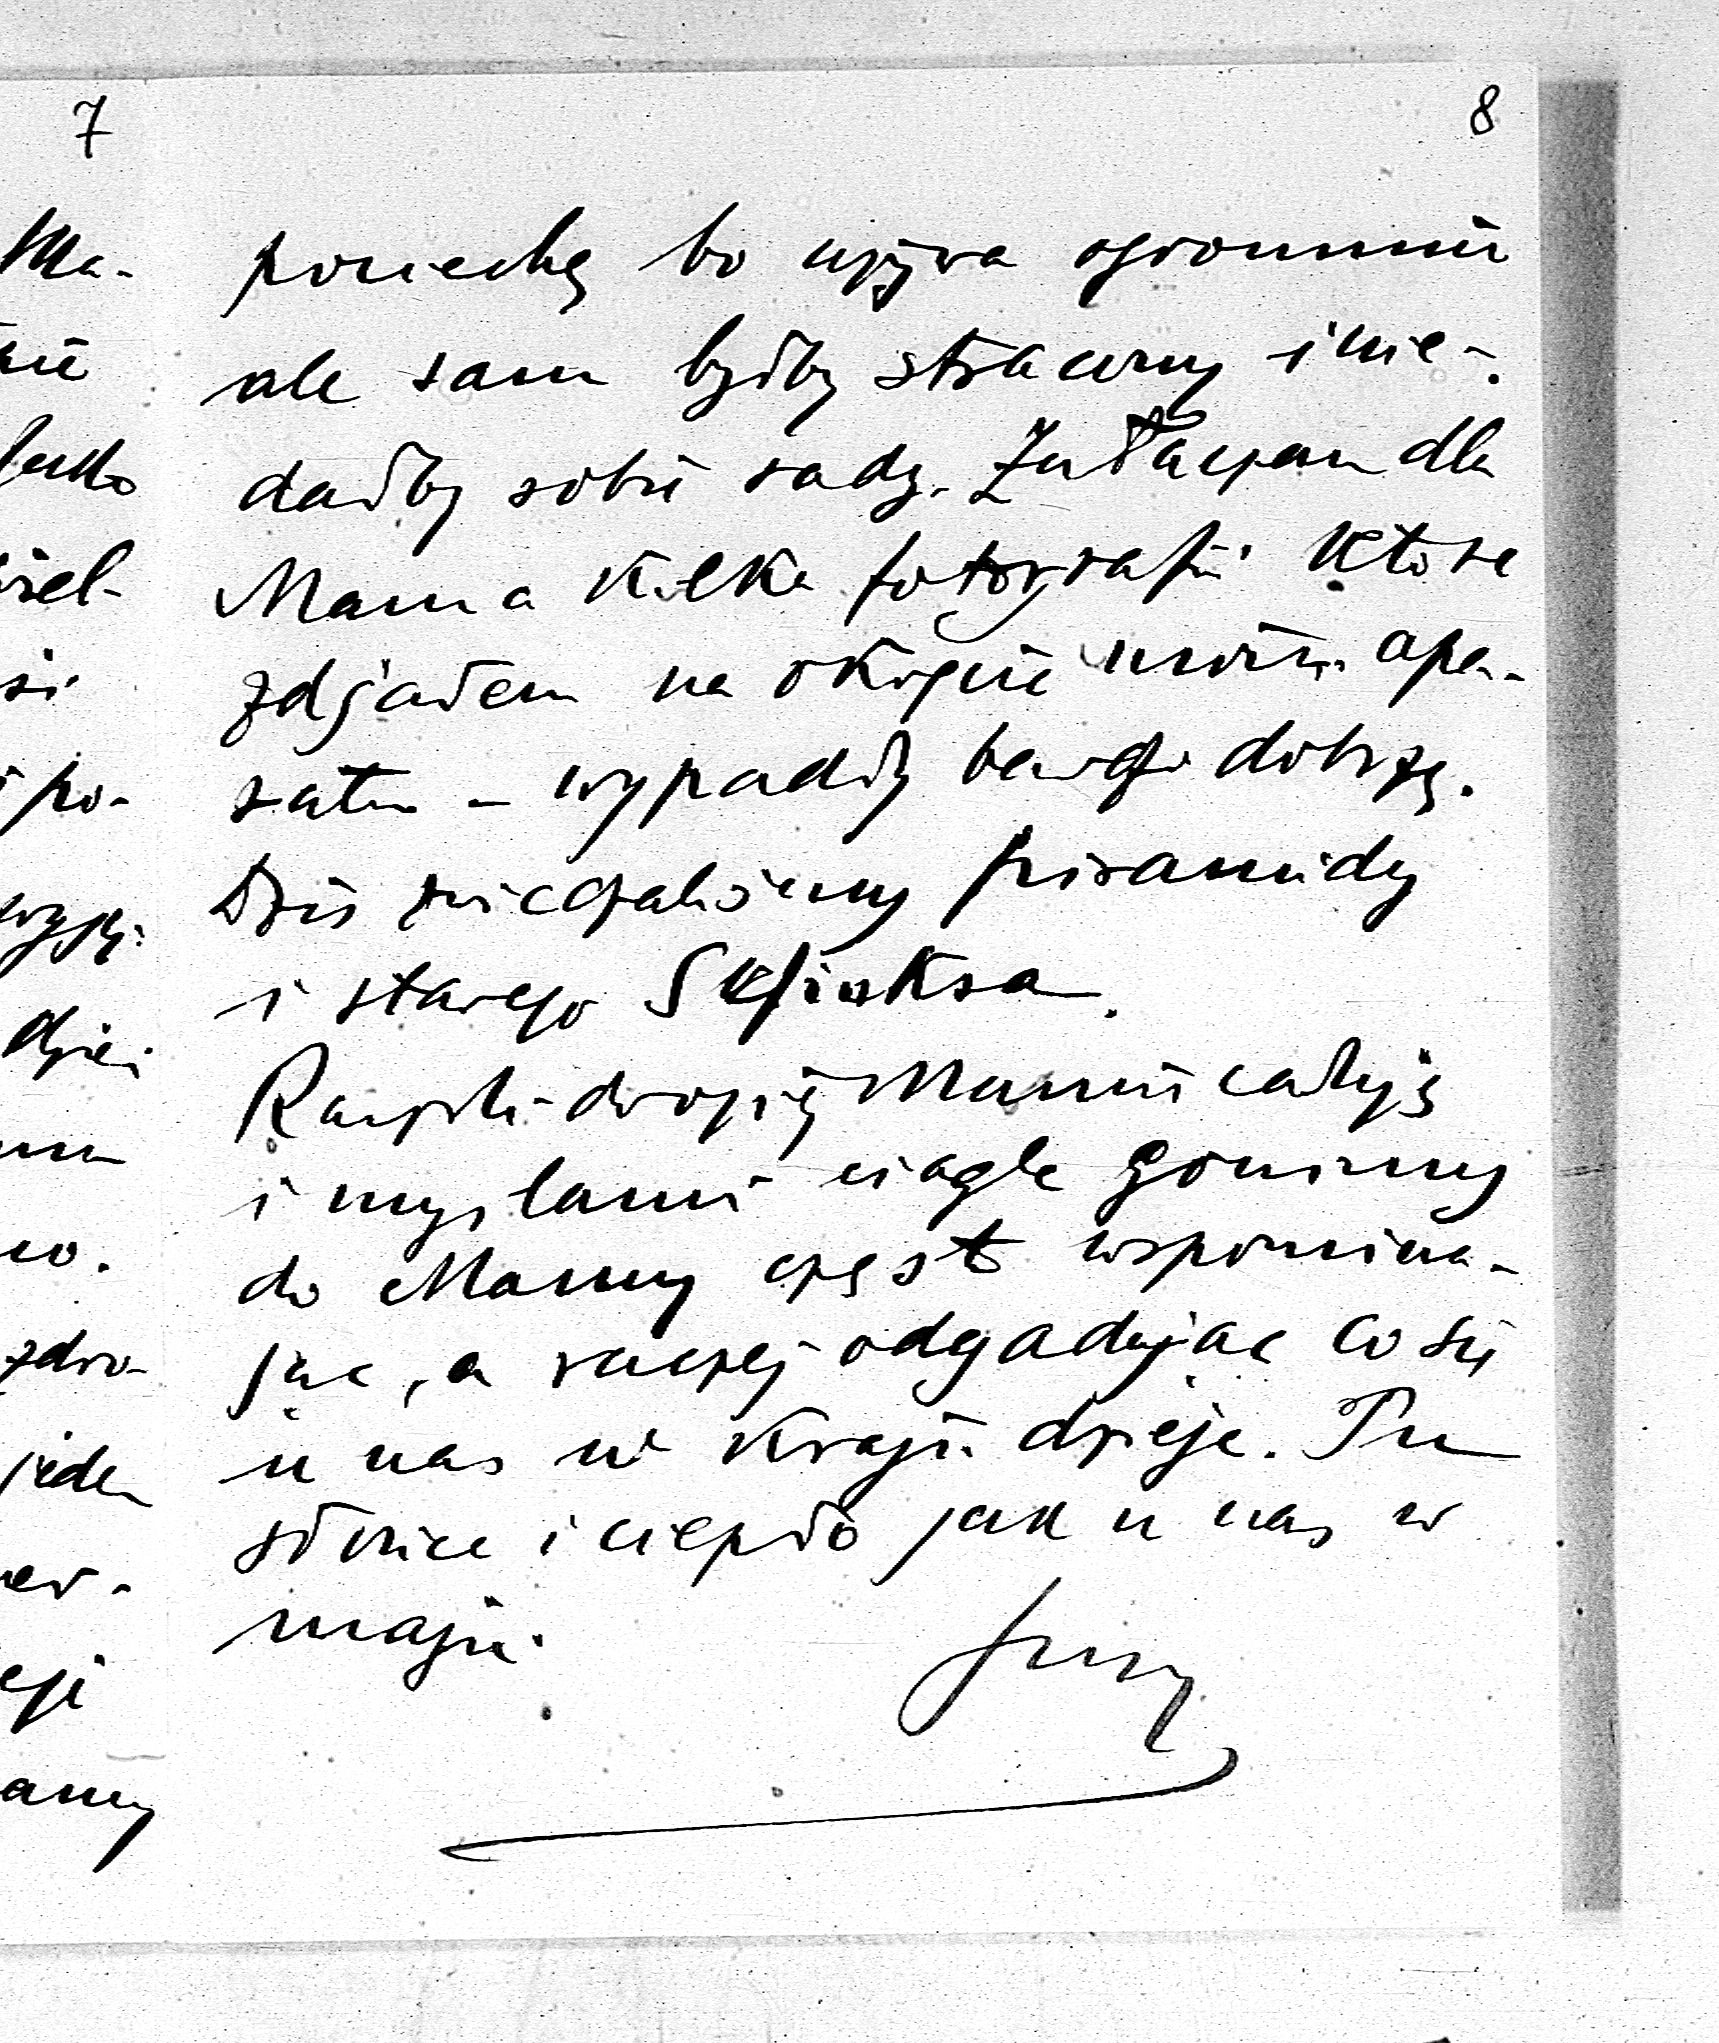 7
8
Ma-
po-
zdro-
jeden
pociechę bo używa ogromnie
ale sam byłby stracony i nie-
dałby sobie rady. Załączam dla
Mama kilka fotografii które
zdjąłem na okręcie moim apa-
ratem - wypadły bardzo dobrze.
Dziś zwiedzaliśmy piramidy
i starego Sfinksa.
Rączki drogiej Mamie całuję
i myślami ciągle gonimy
do Mamy często wspomina-
jąc, a raczej odgadując co się
u nas w kraju dzieje. Tu
słońce i ciepło jak u nas w
maju.
Jerzy